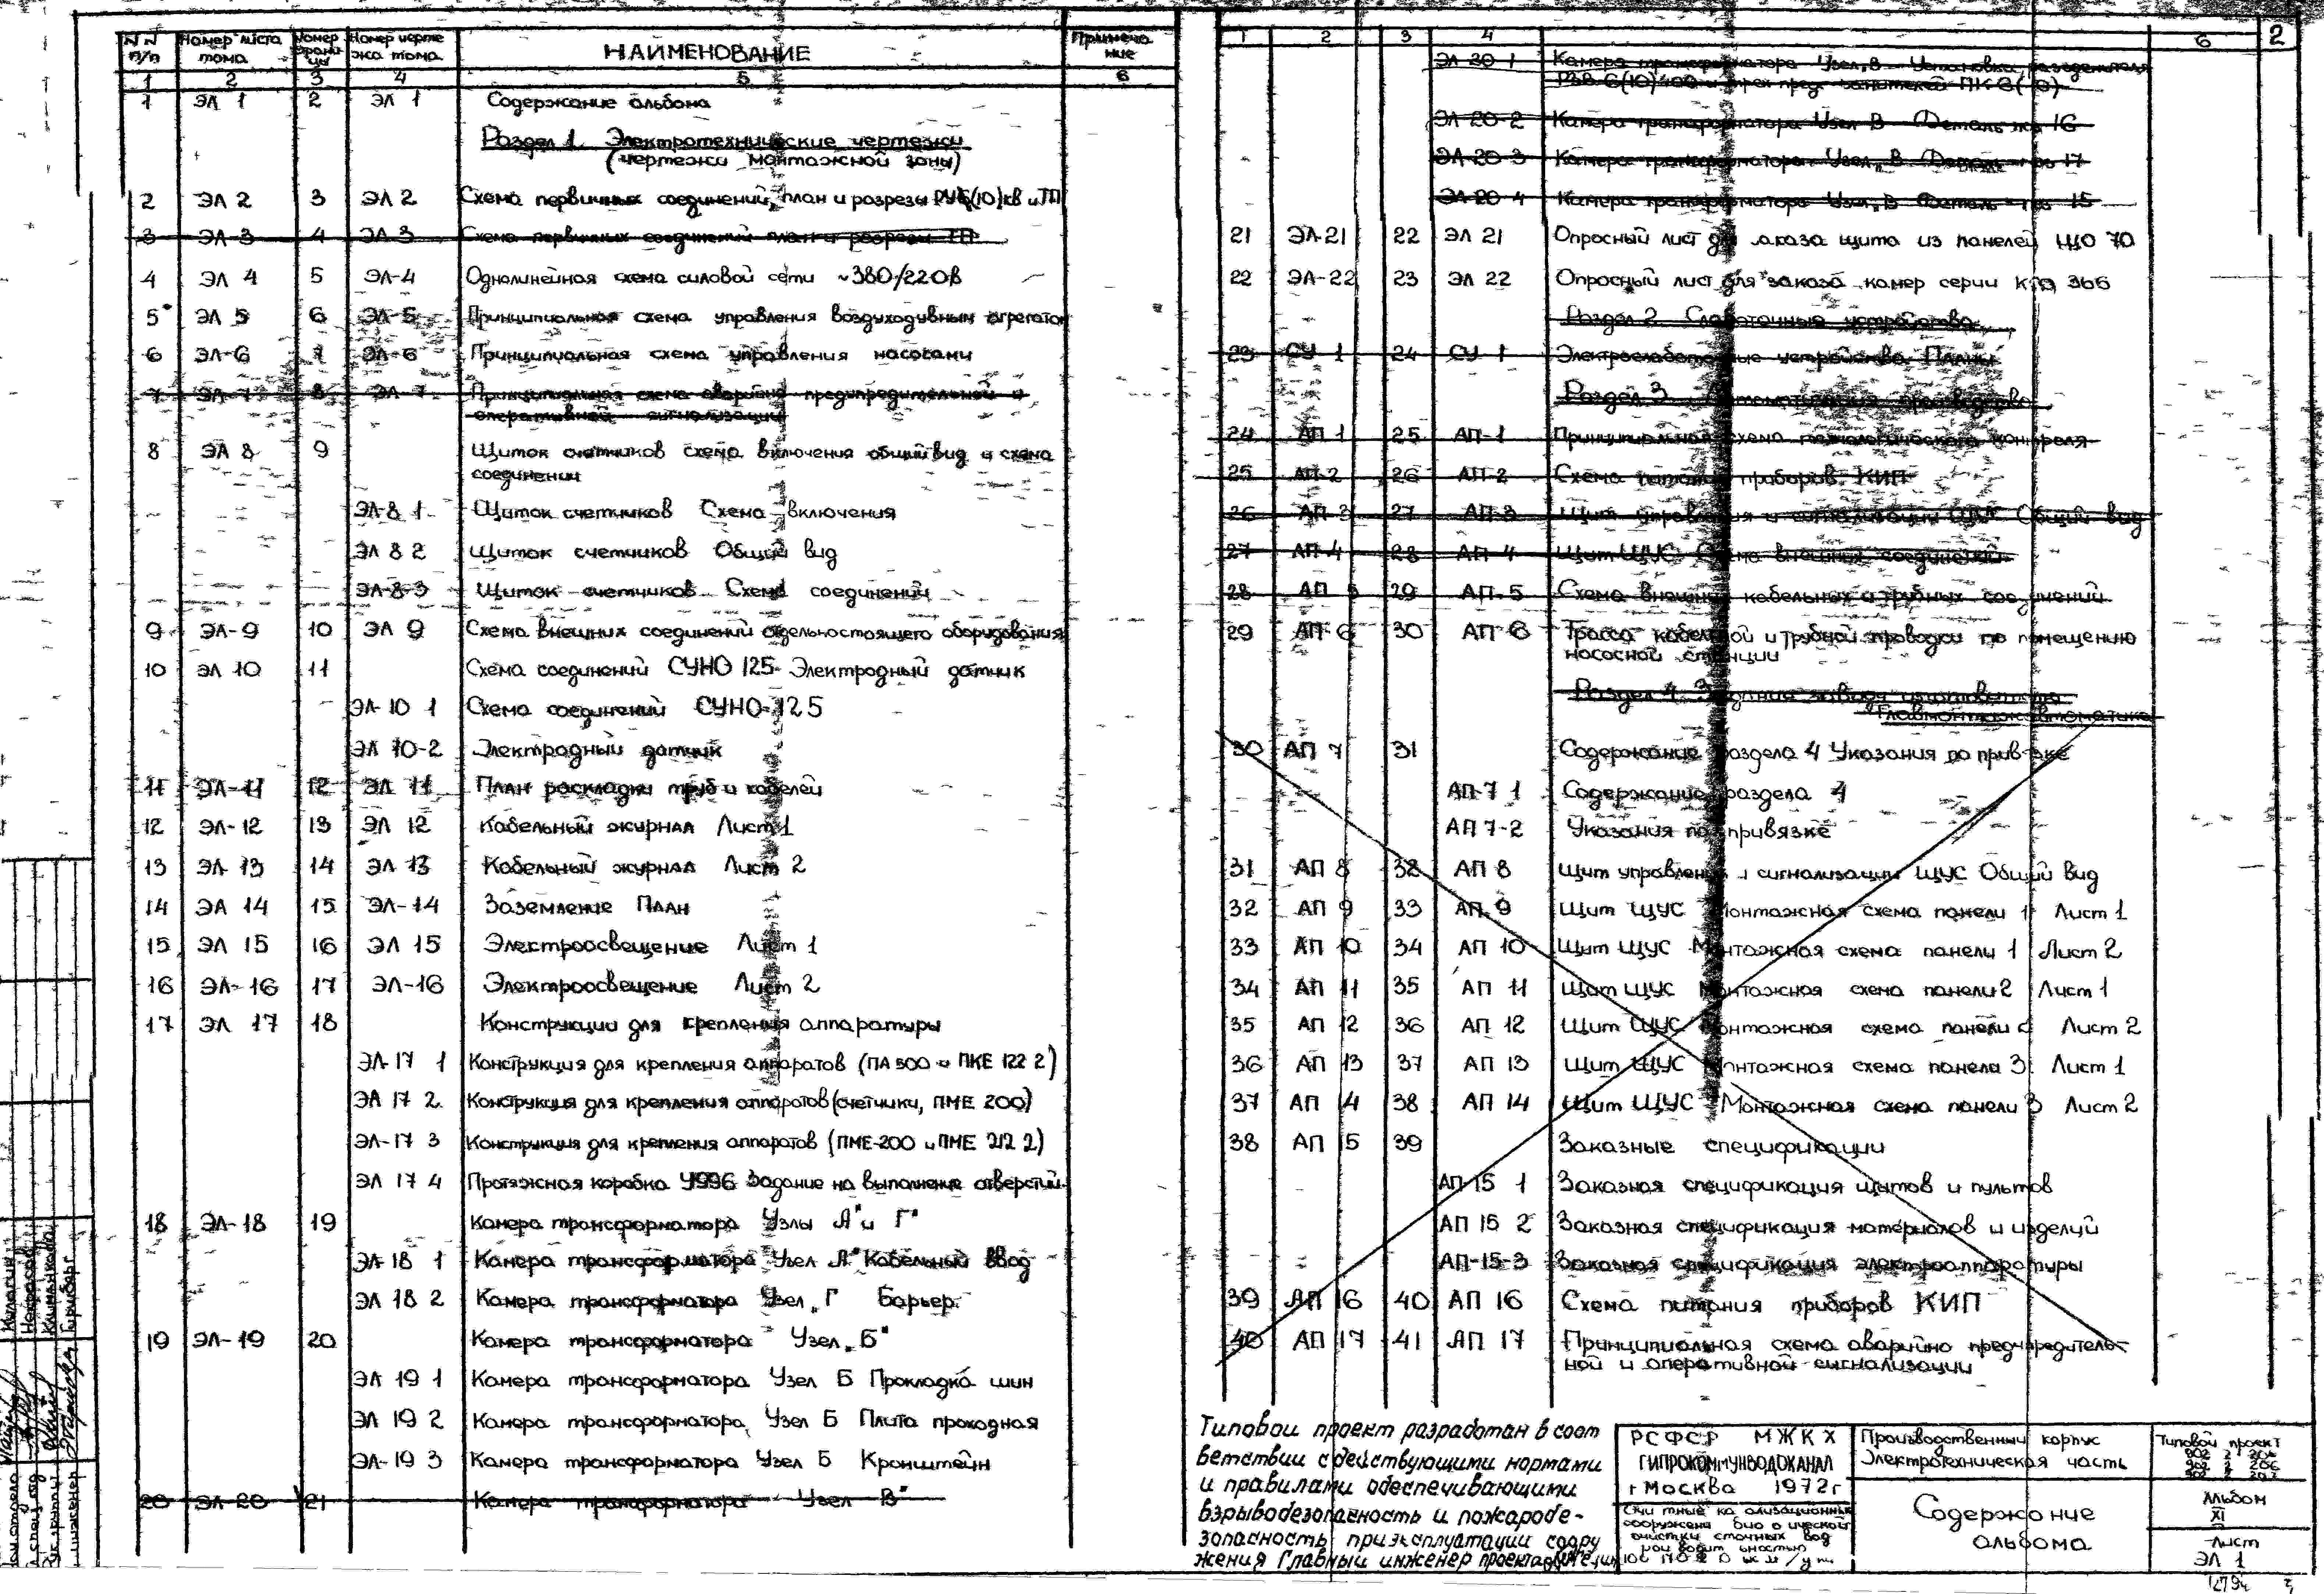 NN п/п Номер листа тома Номер страницы Номер чертежа тома НАИМЕНОВАНИЕ Примечание
1 2 3 4 5 6
1 ЭЛ 1 2 ЭЛ 1 Содержание альбома
Раздел 1. Электротехнические чертежи
(чертежи монтажной зоны)
2 ЭЛ 2 3 ЭЛ 2 Схема первичных соединений, план и разрезы РУ6(10)кв и ТП
3 ЭЛ-3 4 ЭЛ 3 Схема первичных соединений план и разрезы ТП
4 ЭЛ 4 5 ЭЛ-4 Однолинейная схема силовой сети ~380/220в
5 ЭЛ 5 6 ЭЛ-5 Принципиальная схема управления воздуходувным агрегатом
6 ЭЛ-6 7 ЭЛ-6 Принципиальная схема управления насосами
7 ЭЛ-7 8 ЭЛ-7 Принципиальная схема аварийно предупредительной и
оперативной сигнализации
8 ЭЛ 8 9 Щиток счетчиков схема включения общий вид и схема
соединений
ЭЛ-8 1 Щиток счетчиков Схема включения
ЭЛ 8 2 Щиток счетчиков Общий вид
ЭЛ-8-3 Щиток счетчиков Схема соединений
9 ЭЛ-9 10 ЭЛ 9 Схема внешних соединений отдельностоящего оборудования
10 ЭЛ 10 11 Схема соединений СУНО 125 Электродный датчик
ЭЛ-10 1 Схема соединений СУНО-125
ЭЛ 10-2 Электродный датчик
11 ЭЛ-11 12 ЭЛ 11 План раскладки труб и кабелей
12 ЭЛ-12 13 ЭЛ 12 Кабельный журнал Лист 1
13 ЭЛ 13 14 ЭЛ 13 Кабельный журнал Лист 2
14 ЭЛ 14 15 ЭЛ-14 Заземление План
15 ЭЛ 15 16 ЭЛ 15 Электроосвещение Лист 1
16 ЭЛ-16 17 ЭЛ-16 Электроосвещение Лист 2
17 ЭЛ 17 18 Конструкции для крепления аппаратуры
ЭЛ-17 1 Конструкция для крепления аппаратов (ПА 500 и ПКЕ 122 2)
ЭЛ 17 2 Конструкция для крепления аппаратов (счетчики, ПМЕ 200)
ЭЛ-17 3 Конструкция для крепления аппаратов (ПМЕ-200 и ПМЕ 212 2)
ЭЛ 17 4 Протяжная коробка У996 Задание на выполнение отверстий
18 ЭЛ-18 19 Камера трансформатора Узлы "А" и "Г"
ЭЛ 18 1 Камера трансформатора Узел "А" Кабельный ввод
ЭЛ 18 2 Камера трансформатора Узел "Г" Барьер
19 ЭЛ-19 20 Камера трансформатора Узел "Б"
ЭЛ 19 1 Камера трансформатора Узел Б Прокладка шин
ЭЛ 19 2 Камера трансформатора Узел Б Плита проходная
ЭЛ-19 3 Камера трансформатора Узел Б Кронштейн
20 ЭЛ-20 21 Камера трансформатора Узел "В"
1 2 3 4 6 2
ЭЛ 20 1 Камера трансформатора Узел В Установка разъединителя
РВЗ 6(10) 400 и трех предохранителей ПК 6(10)
ЭЛ 20-2 Камера трансформатора Узел В Деталь 16
ЭЛ 20 3 Камера трансформатора Узел В Деталь 17
ЭЛ-20 4 Камера трансформатора Узел В Деталь 15
21 ЭЛ-21 22 ЭЛ 21 Опросный лист для заказа щита из панелей ЩО 70
22 ЭЛ-22 23 ЭЛ 22 Опросный лист для заказа камер серии КСО 366
Раздел 2 Слаботочные устройства
23 СУ 1 24 СУ 1 Электрослаботочные устройства Планы
Раздел 3 Автоматизация производства
24 АП 1 25 АП-1 Принципиальная схема технологического контроля
25 АП-2 26 АП-2 Схема питания приборов КИП
26 АП-3 27 АП-3 Щит управления и сигнализации ЩУС Общий вид
27 АП-4 28 АП-4 Щит ЩУС Схема внешних соединений
28 АП 5 29 АП-5 Схема внешних кабельных и трубных соединений
29 АП-6 30 АП 6 Трасса кабельной и трубной проводки по помещению
насосной станции
Раздел 4 Задание заводу изготовителю
"Главмонтажавтоматика"
30 АП 7 31 Содержание раздела 4 Указания по привязке
АП-7 1 Содержание раздела 4
АП 7-2 Указания по привязке
31 АП 8 32 АП 8 Щит управления и сигнализации ЩУС Общий вид
32 АП 9 33 АП 9 Щит ЩУС Монтажная схема панели 1 Лист 1
33 АП 10 34 АП 10 Щит ЩУС Монтажная схема панели 1 Лист 2
34 АП 11 35 АП 11 Щит ЩУС Монтажная схема панели 2 Лист 1
35 АП 12 36 АП 12 Щит ЩУС Монтажная схема панели 2 Лист 2
36 АП 13 37 АП 13 Щит ЩУС Монтажная схема панели 3 Лист 1
37 АП 14 38 АП 14 Щит ЩУС Монтажная схема панели 3 Лист 2
38 АП 15 39 Заказные спецификации
АП-15 1 Заказная спецификация щитов и пультов
АП 15 2 Заказная спецификация материалов и изделий
АП-15-3 Заказная спецификация электроаппаратуры
39 АП 16 40 АП 16 Схема питания приборов КИП
40 АП 17 41 АП 17 Принципиальная схема аварийно предупредитель-
ной и оперативной сигнализации
Типовой проект разработан в соот
ветствии с действующими нормами
и правилами обеспечивающими
взрывобезопасность и пожаробе-
зопасность при эксплуатации соору
жения Главный инженер проекта
РСФСР МЖКХ
ГИПРОКОММУНВОДОКАНАЛ
г Москва 1972г
очистки сточных вод
Производственный корпус
Электротехническая часть
Содержание
альбома
Типовой проект
Альбом
XI
Лист
ЭЛ 1
Кулагин
Некрасов
Климанкова
Гринберг